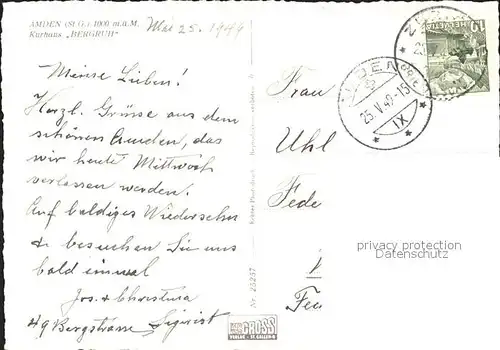 AMDEN (St.G.) 1000 m.ü.M.
Kurhaus „BERGRUH"
Mai 25. 1949
Meine Lieben!
Herzl. Grüsse aus dem
schönen Amden, das
wir heute Mittwoch
verlassen werden.
Auf baldiges Wiedersehn
& besuchen Sie uns
bald einmal
Jos. & Christina
49 Bergstrasse Sigrist
Nr. 25257
GROSS
VERLAG - ST. GALLEN-O
Frau
Uhl
Fede
25.V.49-15
IX
privacy protection
Datenschutz